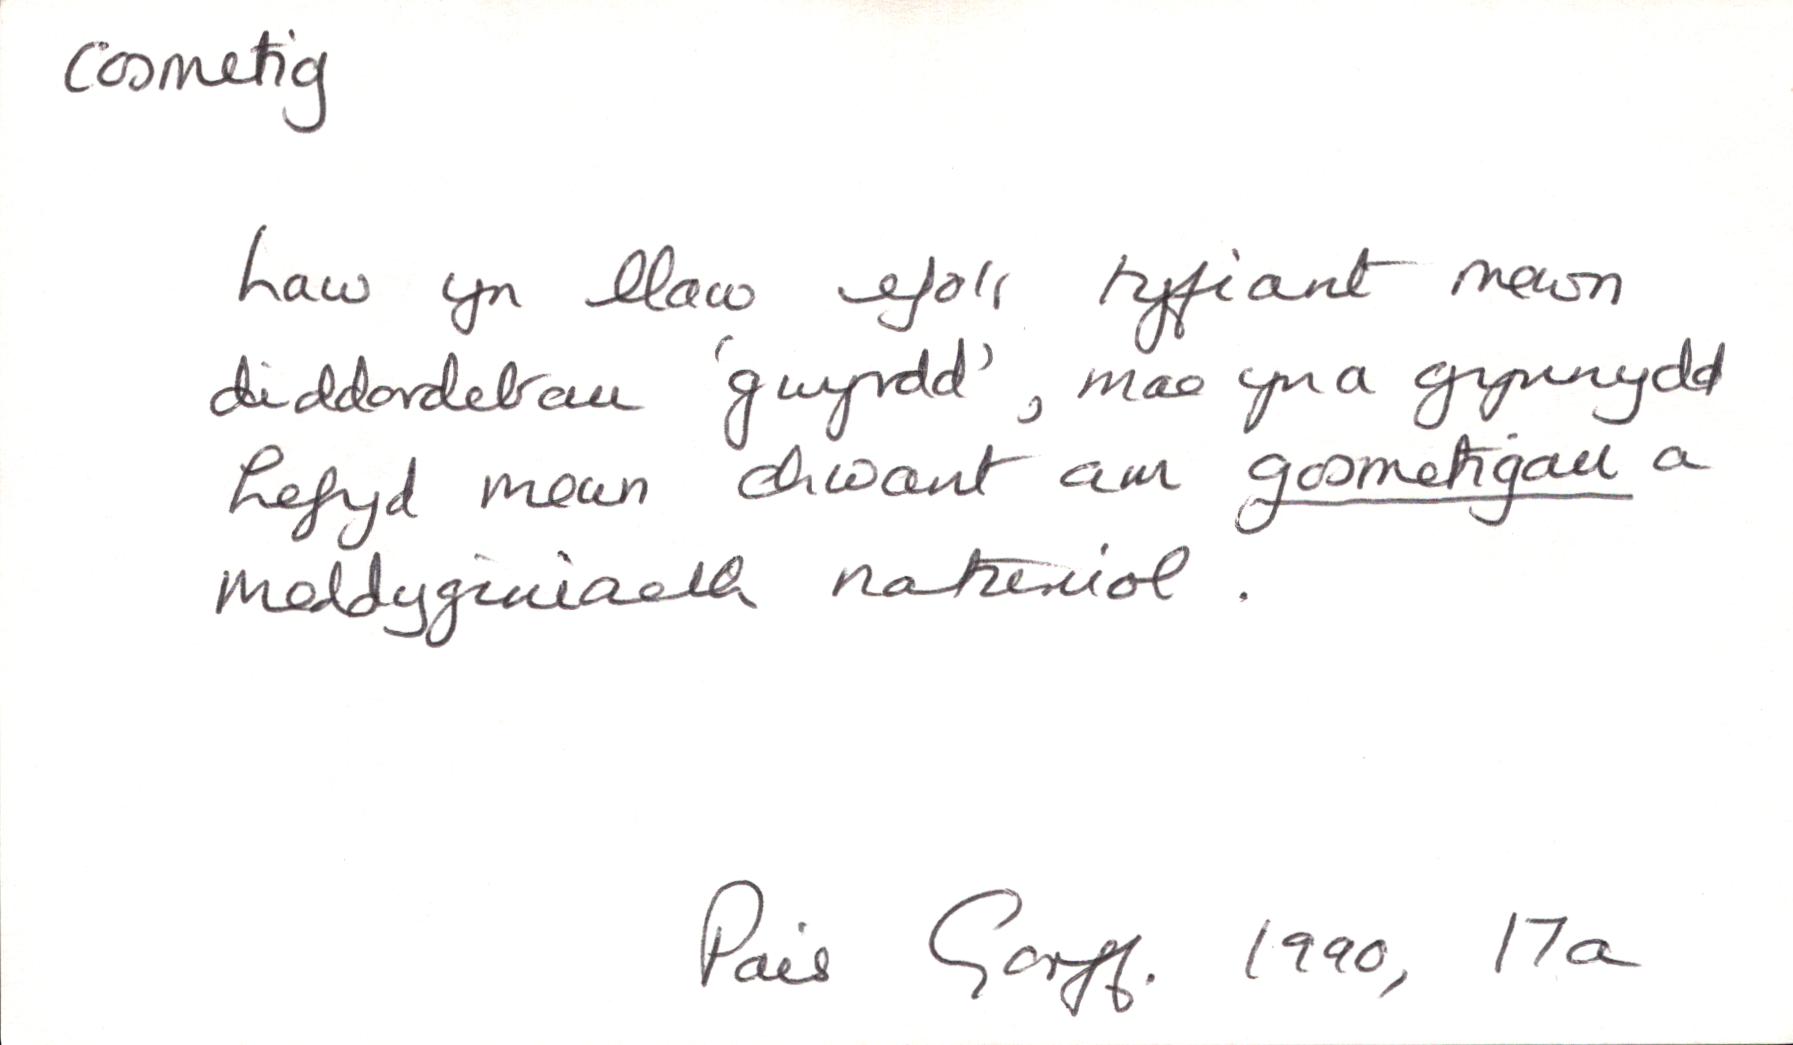 cosmetig
Law yn llaw efo'r tyfiant mewn
diddordebau 'gwyrdd', mae yna gynnydd
hefyd mewn chwant am gosmetigau a
meddyginiaeth naturiol.
Pais Gorff. 1990, 17a